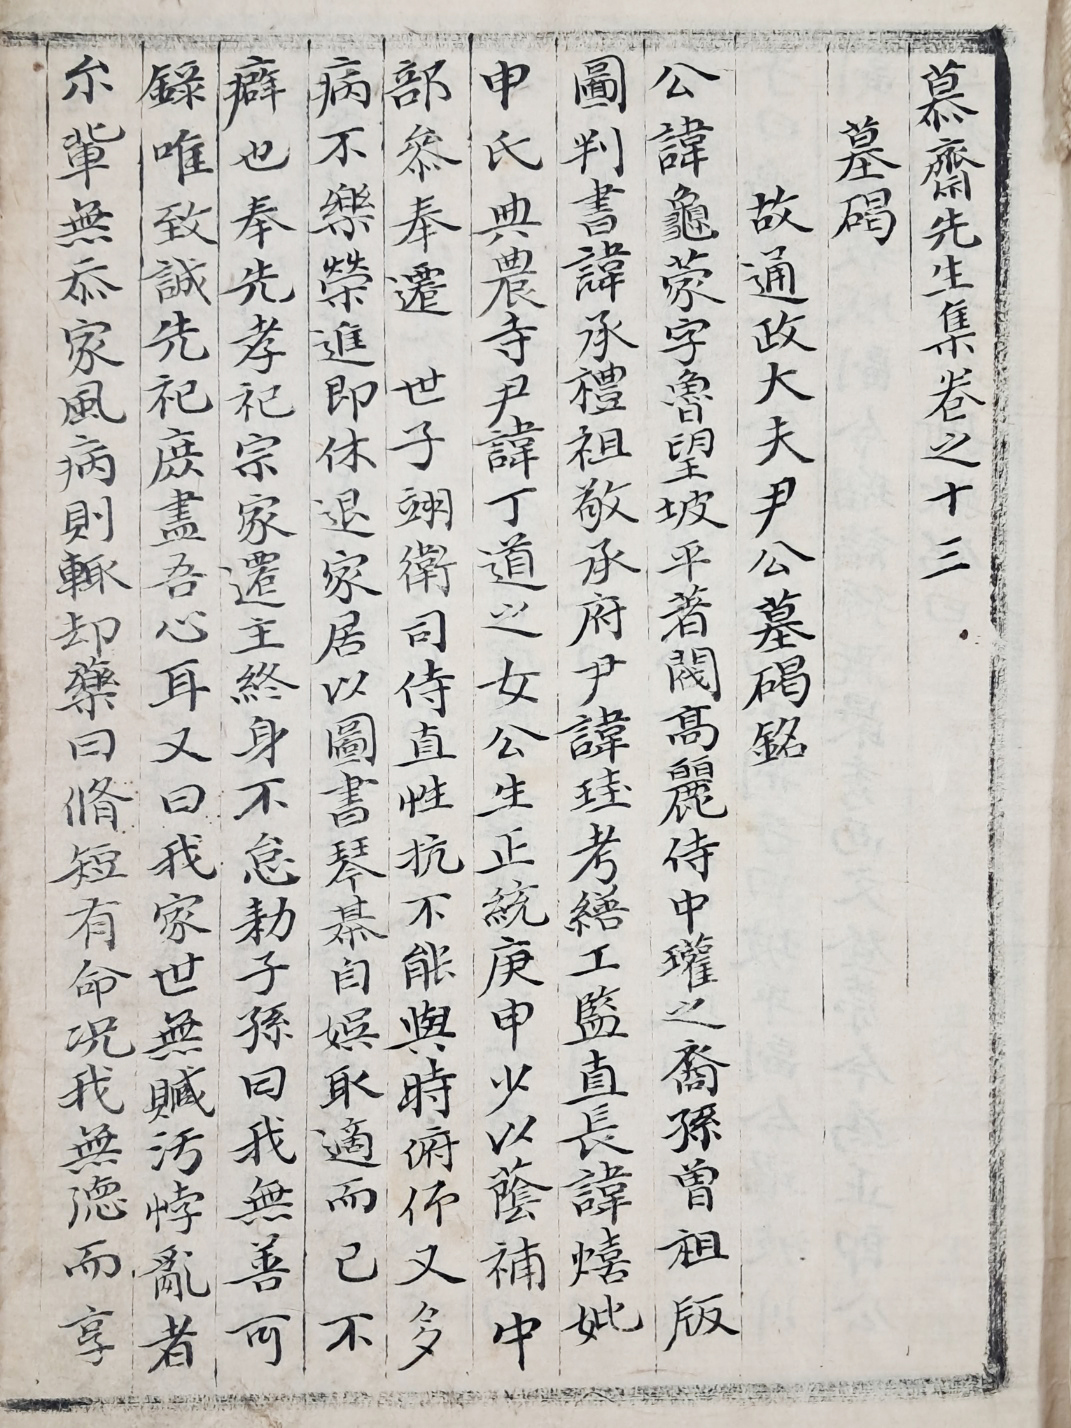 慕齋先生集卷之十三
墓碣
故通政大夫尹公墓碣銘
公諱龜蒙字魯望坡平著閥高麗侍中瓘之裔孫曾祖版
圖判書諱承禮祖敬承府尹諱珪考繕工監直長諱熺妣
申氏典農寺尹諱丁道之女公生正統庚申少以蔭補中
部叅奉遷 世子翊衛司侍直性抗不能與時俯仰又多
病不樂榮進即休退家居以圖書琴棊自娛取適而已不
癖也奉先孝祀宗家遷主終身不怠勑子孫曰我無善可
錄唯致誠先祀庶盡吾心耳又曰我家世無贓汚悖亂者
尒軰無忝家風病則輒却藥曰脩短有命况我無德而享